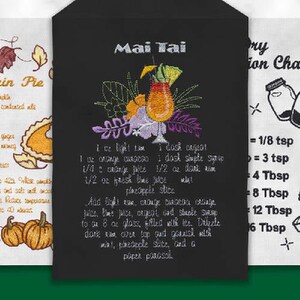 Mai Tai
1 oz light rum 1 dash orgeat
1 oz orange curacao 1 dash simple syrup
1/4 c orange juice 1/2 oz dark rum
1/2 oz fresh lime juice mint
pineapple slice
Add light rum, orange curacao, orange
juice, lime juice, orgeat, and simple syrup
to an 8 oz glass, filled with ice. Drizzle
dark rum over top and garnish with
mint, pineapple slice, and a
paper parasol.
kin Pie
ry
ion Cha
= 1/8 tsp
= 3 tsp
4 Tbsp
8 Tbsp
= 12 Tbsp
16 Tbsp